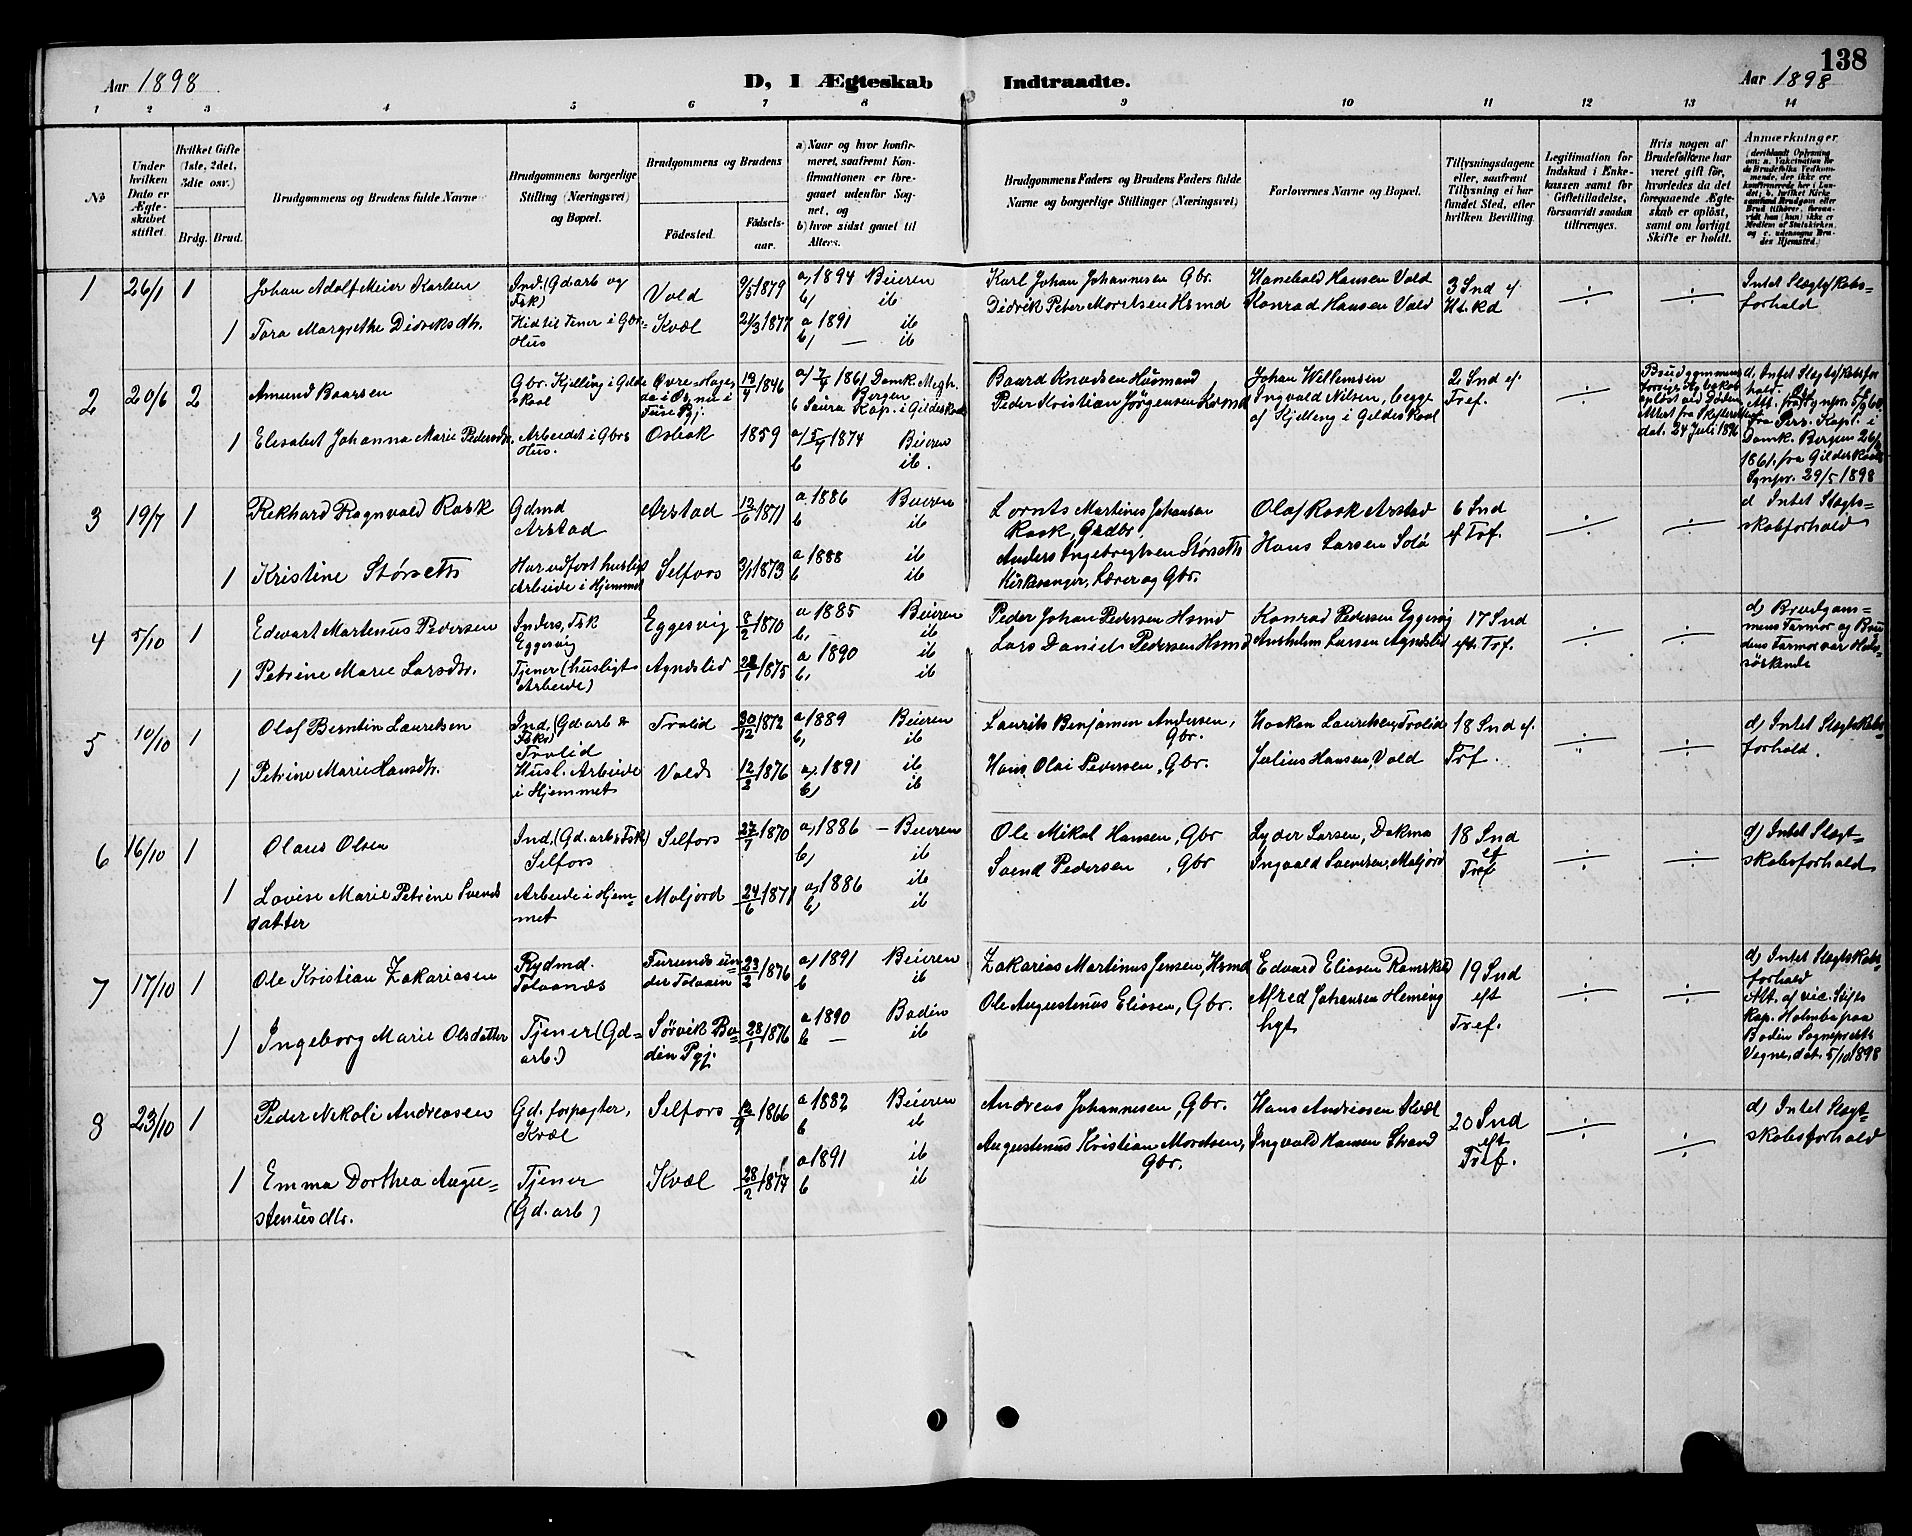 138
Aar 1898
D, I Ægteskab Indtraadte.
Aar 1898
1 2 3 4 5 6 7 8 9 10 11 12 13 14
No
Under hvilken Dato er Ægteskabet stiftet.
Hvilket Gifte (1ste, 2det, 3die osv.)
Brdg. Brud.
Brudgommens og Brudens fulde Navne
Brudgommens borgerlige Stilling (Næringsvei) og Bopæl.
Brudgommens og Brudens
Fødested.
Fødselsaar.
a) Naar og hvor konfirmeret, saafremt Konfirmationen er foregaaet udenfor Sognet, og
b) hvor sidst gaaet til Alters.
Brudgommens Faders og Brudens Faders fulde Navne og borgerlige Stillinger (Næringsvei)
Forlovernes Navne og Bopæl.
Tillysningsdagene eller, saafremt Tillysning ei har fundet Sted, efter hvilken Bevilling.
Legitimation for Indskud i Enkekassen samt for Giftetilladelse, forsaavidt saadan tiltrænges.
Hvis nogen af Brudefolkene har været gift før, hvorledes da det foregaaende Ægteskab er opløst, samt om lovligt Skifte er holdt.
Anmærkninger
1 26/1 1 Johan Adolf Meier Karlsen Ind. (Gdarb og Fsk) Vold 9/5 1879 a) 1894 Beieren b) ib Karl Johan Johannesen Gbr. Hanebald Hansen Vold 3 Snd ef. H.t.kd ÷ ÷ Intet Slægtskabsforhold
1 Tora Margrethe Didriksdtr. Hidtil Tjener i Gbr. Hus Kvæl 21/3 1877 a 1891 ib b) — ib Didrik Peter Moretsen Hsmd Konrad Hansen Vold
2 20/6 2 Amund Baarsen Gbr. Kjelling i Gildeskaal 19/4 1846 a) 7/4 1861 Domk. Bergen b Saura Kap. i Gildeskaal Baard Knudsen Husmand Johan Willemsen 2 Snd ef. Tref. ÷ dat. 24 Juli 1896 d. Intet Slægtskabsforhold
1 Elisabet Johanna Marie Pedersdtr. Arbeidet i Gbrs Hus. Osbak 1859 a) 5/7 1874 Beieren b ib. Peder Kristian Jørgensen Ingvald Nilsen, begge af Kjelling i Gildeskaal 1861. fra Gildeskaal Sgnpr. 29/5 1898
3 19/7 1 Rikhard Ragnvald Rask Gdmd Arstad Arstad 13/6 1871 a 1886 Beieren b ib Lornts Martines Johansen Rask, Gadbr. Olaf Rask Arstad 6 Snd ef Trf. ÷ ÷ d Intet Slægtskabsforhold
1 Kristine Størseth Har udført husligt Arbeide i Hjemmet Selfors 1873 a 1888 ib b ib Anders Ingebregtsen Størseth Kirkesanger, Lærer og Gbr. Hans Larsen Solø
4 5/10 1 Edvart Martenus Pedersen Inders, Fsk Eggesvig Eggesvig 8/2 1870 a 1885 Beieren b, ib Peder Johan Pedersen Hsmd Konrad Pedersen Eggesvig 17 Snd eft. Trf. ÷ ÷ d) Brudgommens Farmor og Brudens Farmor var Halvsøskende
1 Petrine Marie Larsdtr. Tjener (husligt Arbeide) Agndslid 1875 a 1890 ib b, ib Lars Daniel Pedersen Hsmd Anshelm Larsen Agndslid
5 10/10 1 Olaf Berntin Lauretsen Ind. (Gd. arb & Fsk) Trolid Trolid 30/12 1872 a 1889 Beieren b, ib Laurits Benjamin Andersen, Gbr. Haakon Lauritsen, Trolid 18 Snd ef. Trf. ÷ ÷ d) Intet Slægtskabsforhold.
1 Petrine Marie Hansdtr. Husl. Arbeide i Hjemmet Vold 12/2 1876 a, 1891 ib b, ib Hans Olai Pedersen, Gbr. Julius Hansen, Vold
6 16/10 1 Olaus Olsen Ind. (Gd. arb & Fsk) Selfors Selfors 27/7 1870 a, 1886 - Beieren b, ib Ole Mikal Hansen, Gbr Lyder Larsen, Dokmo 18 Snd eft Tref ÷ ÷ d) Intet Slægtskabsforhold
1 Lovise Marie Petrine Svendsdatter Arbeide i Hjemmet Moljord 24/6 1871 a, 1886 ib b, ib Svend Pedersen, Gbr Ingvald Svendsen, Moljord
7 17/10 1 Ole Kristian Zakariasen Rydmd. Tolvaanes Furunds under Tolvaan 23/2 1876 a) 1891 Beieren b ib Zakarias Martinus Jensen, Hsmd Edvard Eliasen Ramskel 19 Snd eft Tref. ÷ ÷ d) Intet Slægtskabsforhold Att. af vic. Stifts Kap. Holmbo paa Bodin Sogneprests Vegne, dat. 5/10 1898
1 Ingeborg Marie Olsdatter Tjener (Gd=arb.) Sørvik Bodin Pgj. 28/1 1876 a 1890 Bodin b — ib Ole Augustenus Eliasen, Gbr. Alfred Johansen
8 23/10 1 Peder Nikoli Andreasen Gd. forpagter, Kvæl Selfors 12/9 1866 a 1882 Beieren b ib Andreas Johannesen, Gbr. Hans Andreasen Kvæl 20 Snd eft Tref. ÷ ÷ d) Intet Slægtskabsforhold
1 Emma Dorthea Augustenusdtr. Tjener (Gd. arb) Kvæl 28/2 1877 a 1891 ib b ib Augustenus Kristian Moretsen, Gbr. Ingvald Hansen Strand